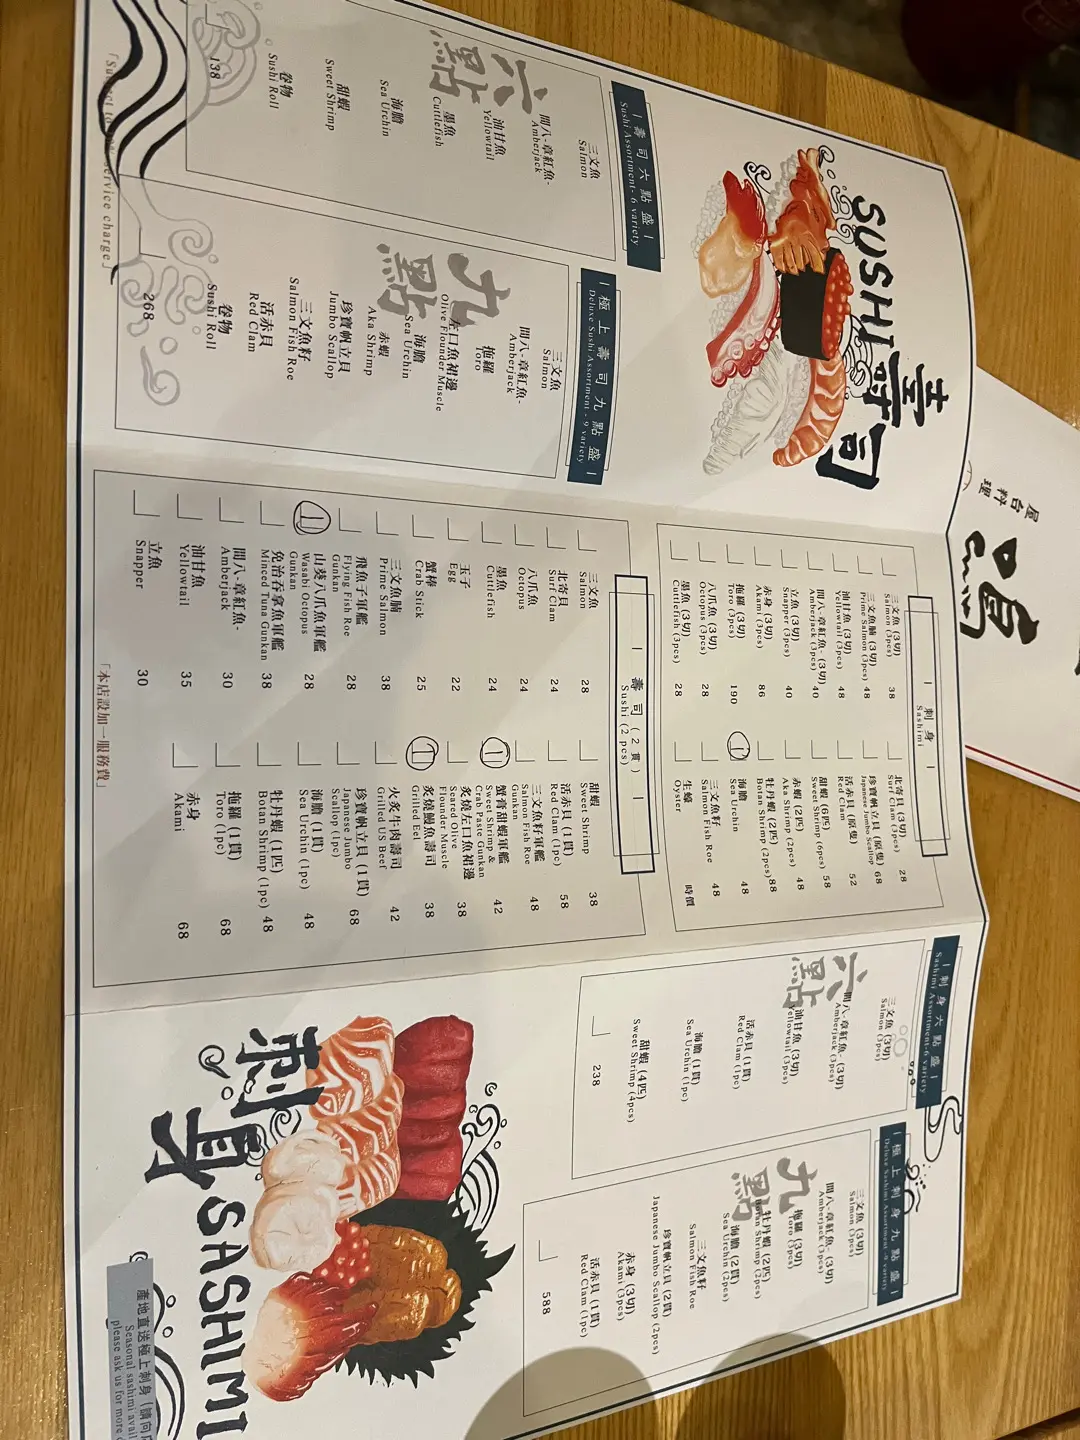 SUSHI 壽司
| 壽司六點盛 |
Sushi Assortment- 6 variety
六點
三文魚
Salmon
間八-章紅魚-
Amberjack
油甘魚
Yellowtail
墨魚
Cuttlefish
海膽
Sea Urchin
甜蝦
Sweet Shrimp
卷物
Sushi Roll
138
| 極上壽司九點盛 |
Deluxe Sushi Assortment - 9 variety
九點
三文魚
Salmon
間八-章紅魚-
Amberjack
拖羅
Toro
左口魚裙邊
Olive Flounder Muscle
海膽
Sea Urchin
赤蝦
Aka Shrimp
珍寶帆立貝
Jumbo Scallop
三文魚籽
Salmon Fish Roe
活赤貝
Red Clam
卷物
Sushi Roll
268
service charge」
| 刺身 |
Sashimi
三文魚 (3切)
Salmon (3pcs)
38
三文魚腩 (3切)
Prime Salmon (3pcs)
48
油甘魚 (3切)
Yellowtail (3pcs)
48
間八-章紅魚- (3切)
Amberjack (3pcs)
40
立魚 (3切)
Snapper (3pcs)
40
赤身 (3切)
Akami (3pcs)
86
拖羅 (3切)
Toro (3pcs)
190
八爪魚 (3切)
Octopus (3pcs)
28
墨魚 (3切)
Cuttlefish (3pcs)
28
北寄貝 (3切)
Surf Clam (3pcs)
28
珍寶帆立貝 (原隻)
Japanese Jumbo Scallop
68
活赤貝 (原隻)
Red Clam
52
甜蝦 (6匹)
Sweet Shrimp (6pcs)
58
赤蝦 (2匹)
Aka Shrimp (2pcs)
48
牡丹蝦 (2匹)
Botan Shrimp (2pcs)
88
海膽
Sea Urchin
48
三文魚籽
Salmon Fish Roe
48
生蠔
Oyster
時價
| 壽司 (2貫) |
Sushi (2 pcs)
三文魚
Salmon
28
北寄貝
Surf Clam
24
八爪魚
Octopus
24
墨魚
Cuttlefish
24
玉子
Egg
22
蟹棒
Crab Stick
25
三文魚腩
Prime Salmon
38
飛魚子軍艦
Flying Fish Roe
Gunkan
28
山葵八爪魚軍艦
Wasabi Octopus
Gunkan
28
免治吞拿魚軍艦
Minced Tuna Gunkan
38
間八-章紅魚-
Amberjack
30
油甘魚
Yellowtail
35
立魚
Snapper
30
甜蝦
Sweet Shrimp
38
活赤貝 (1貫)
Red Clam (1pc)
58
三文魚籽軍艦
Salmon Fish Roe
Gunkan
48
蟹膏甜蝦軍艦
Sweet Shrimp &
Crab Paste Gunkan
42
炙燒左口魚裙邊
Seared Olive
Flounder Muscle
38
炙燒鰻魚壽司
Grilled Eel
38
火炙牛肉壽司
Grilled US Beef
42
珍寶帆立貝 (1貫)
Japanese Jumbo
Scallop (1pc)
68
海膽 (1貫)
Sea Urchin (1pc)
48
牡丹蝦 (1匹)
Botan Shrimp (1pc)
48
拖羅 (1貫)
Toro (1pc)
68
赤身
Akami
68
「本店設加一服務費」
| 刺身六點盛 |
Sashimi Assortment-6 variety
六點
三文魚 (3切)
Salmon (3pcs)
間八-章紅魚- (3切)
Amberjack (3pcs)
油甘魚 (3切)
Yellowtail (3pcs)
活赤貝 (1貫)
Red Clam (1pc)
海膽 (1貫)
Sea Urchin (1pc)
甜蝦 (4匹)
Sweet Shrimp (4pcs)
238
| 極上刺身九點盛 |
Deluxe Sashimi Assortment -9 variety
九點
三文魚 (3切)
Salmon (3pcs)
間八-章紅魚- (3切)
Amberjack (3pcs)
拖羅 (3切)
Toro (3pcs)
牡丹蝦 (2匹)
Botan Shrimp (2pcs)
海膽 (2貫)
Sea Urchin (2pcs)
三文魚籽
Salmon Fish Roe
珍寶帆立貝 (2貫)
Japanese Jumbo Scallop (2pcs)
赤身 (3切)
Akami (3pcs)
活赤貝 (1貫)
Red Clam (1pc)
588
刺身 SASHIMI
產地直送極上刺身
Seasonal sashimi avail
please ask us for more
屋台料理
鳴